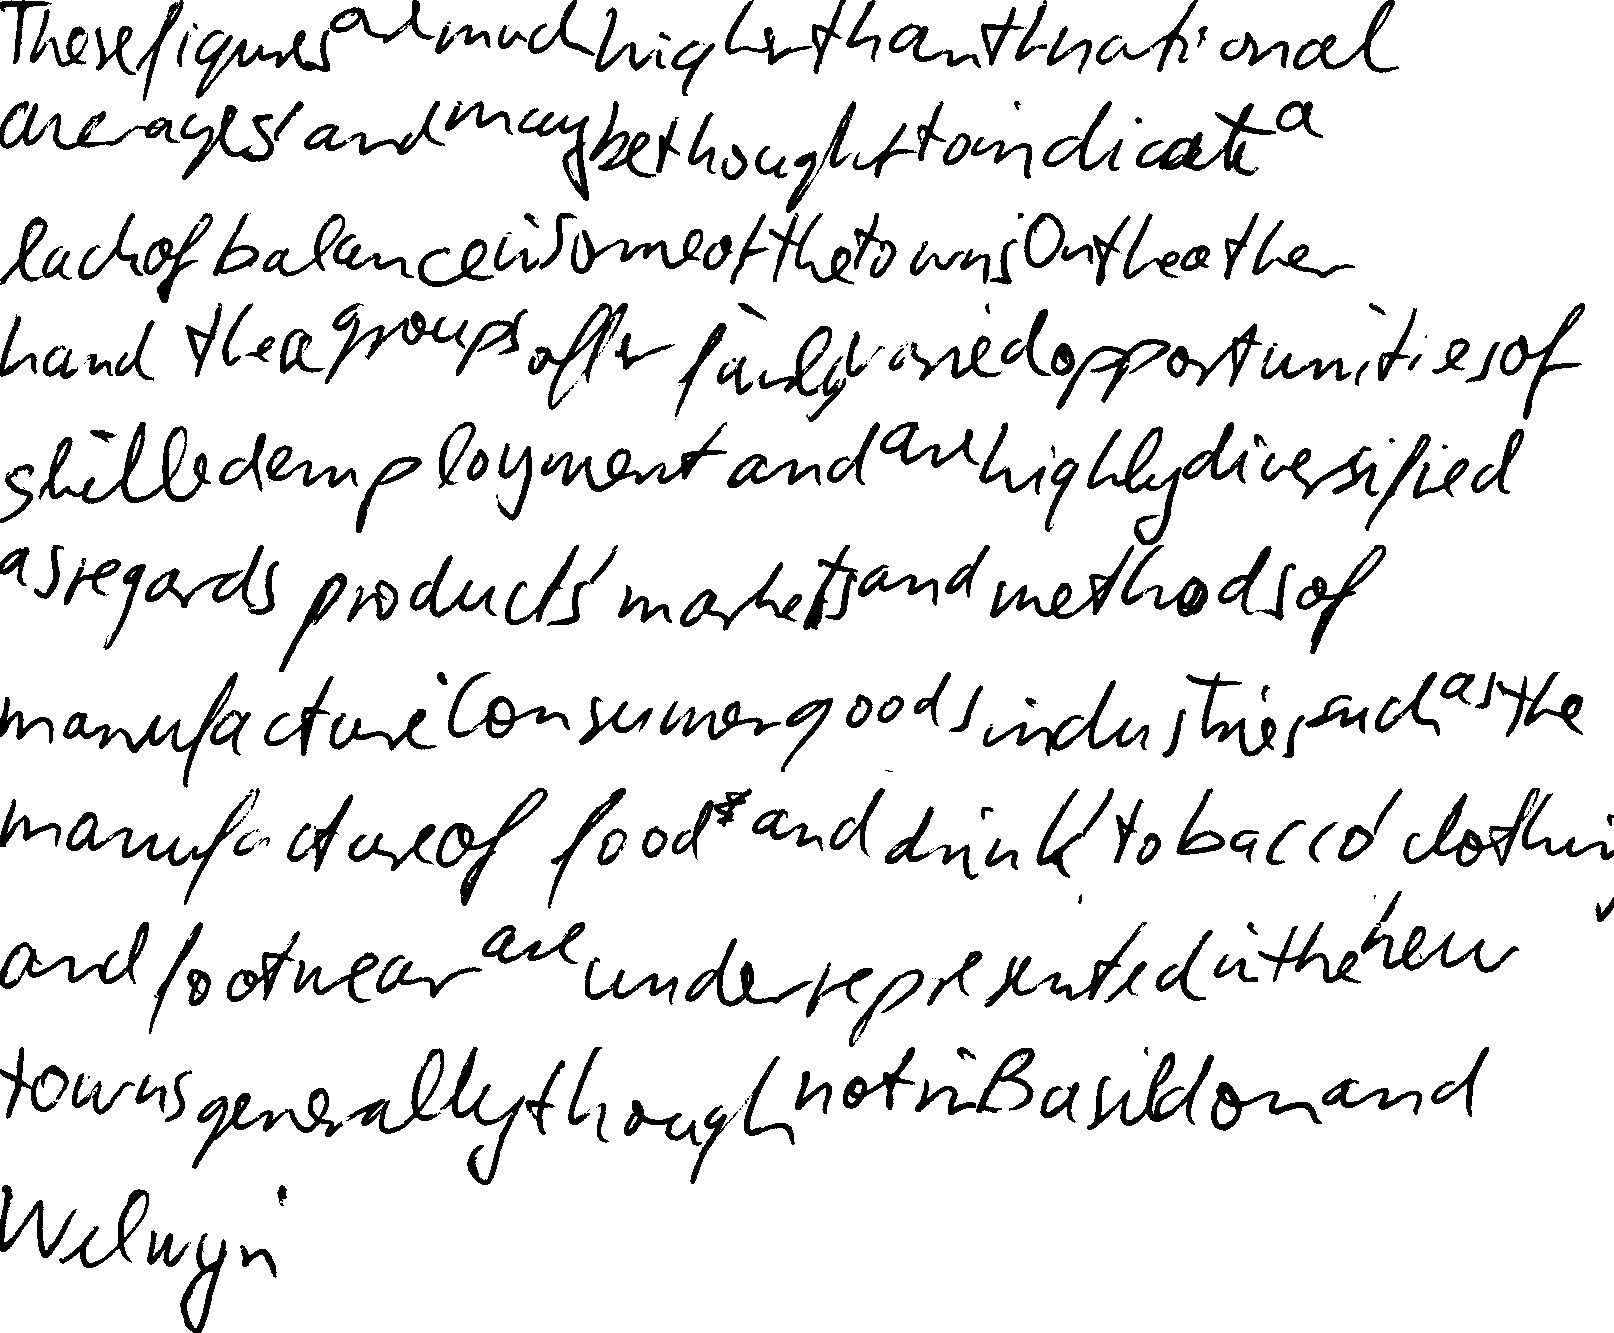 These figures are much higher than the national
averages, and may be thought to indicate a
lack of balance in some of the towns. On the other
hand the a groups offer fairly varied opportunities of
skilled employment and are highly diversified
as regards products, markets and methods of
manufacture. Consumer goods industries such as the
manufacture of food and drink, tobacco, clothing
and footwear are under represented in the new
towns generally though not in Basildon and
Welwyn.